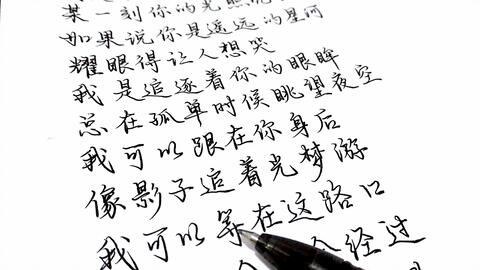 某一刻你的光照
如果说你是遥远的星河
耀眼得让人想哭
我是追逐着你的眼眸
总在孤单时候眺望夜空
我可以跟在你身后
像影子追着光梦游
我可以等在这路口
个人经过